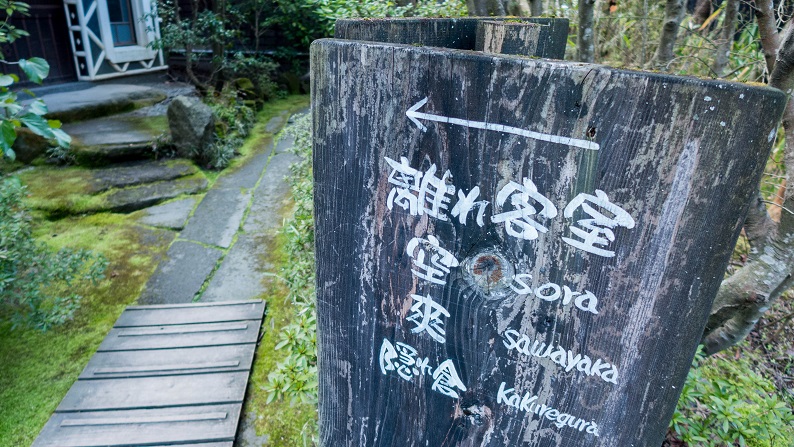 離れ客室
空 sora
爽 sawayaka
隠れ倉 kakuregura